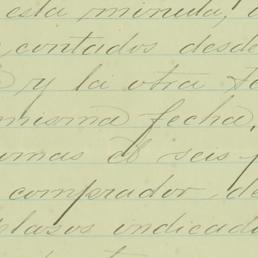 esta minuta,
contados desde
y la otra
misma fecha,
umas de seis
comprador, de
plazos indicad